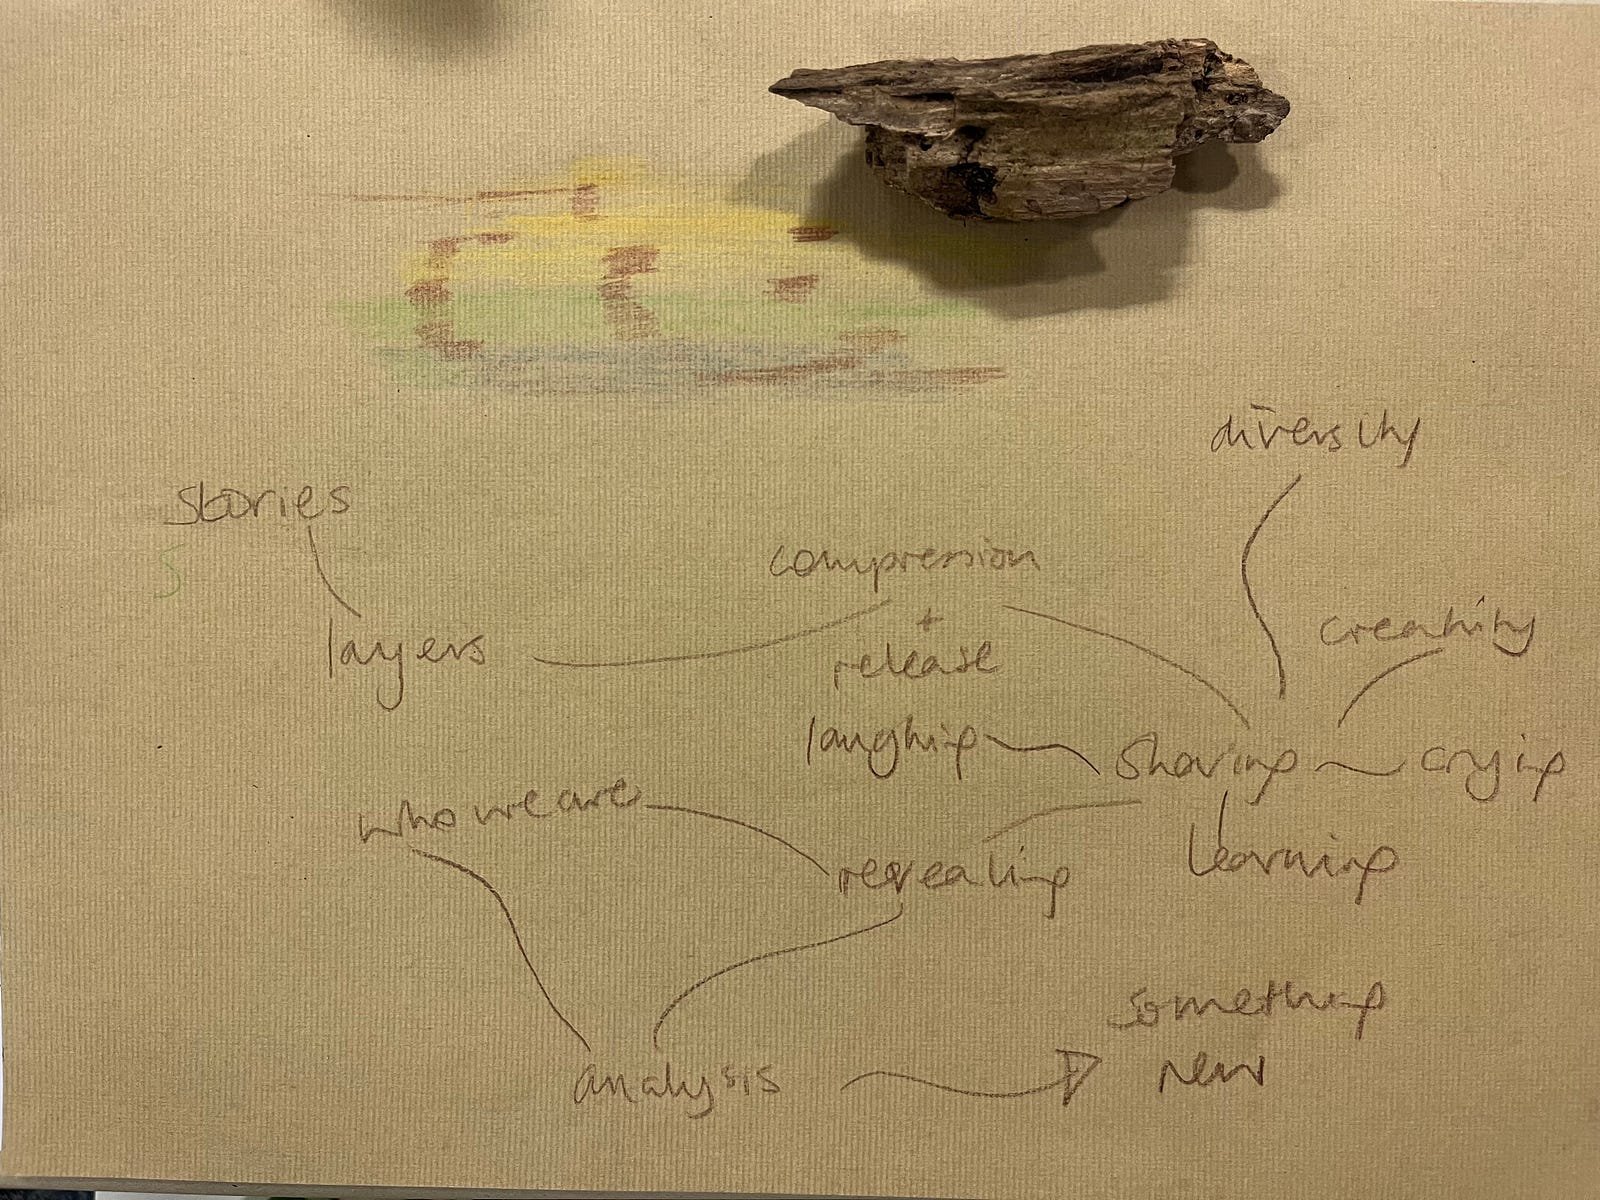 diversity
stories
S
compression
+
release
creativity
layers
laughing
sharing
crying
who we are
revealing
learning
something
new
analysis